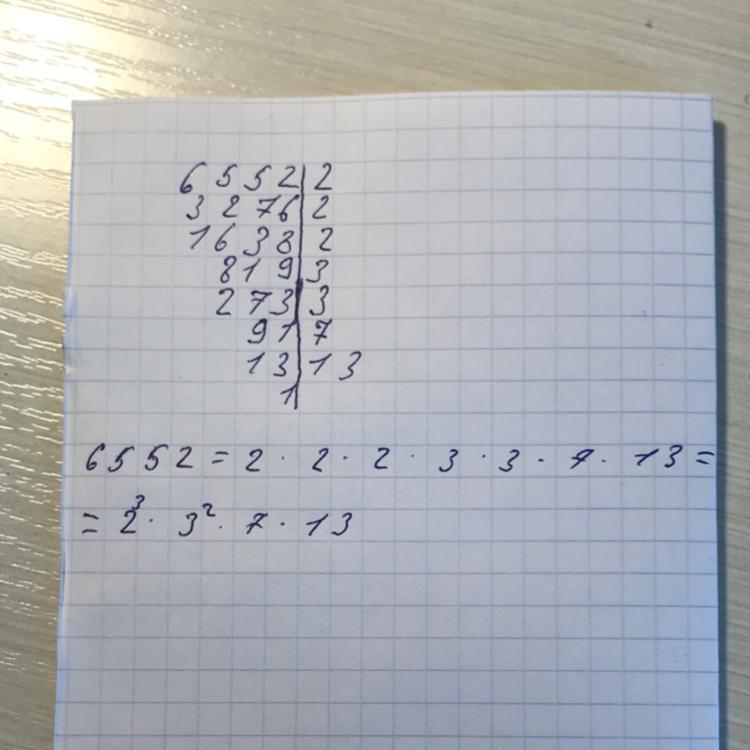 6552|2
3276|2
1638|2
819|3
273|3
91|7
13|13
1|
6552 = 2 · 2 · 2 · 3 · 3 · 7 · 13 =
= 2³ · 3² · 7 · 13